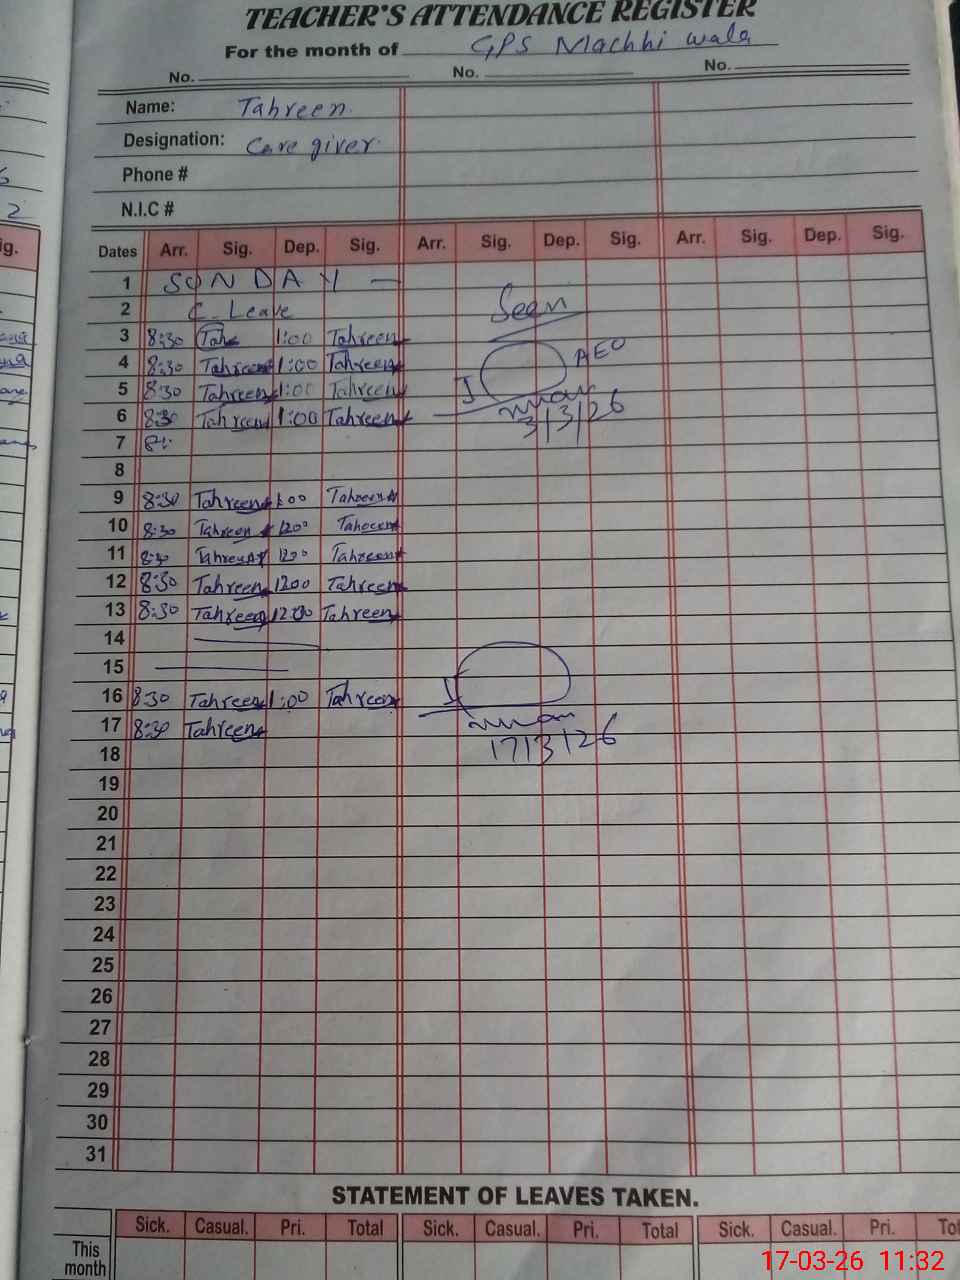 TEACHER'S ATTENDANCE REGISTER
For the month of GPS Machhi wala
No. No. No.
Name: Tahreen
Designation: Care giver
Phone #
N.I.C #
Dates Arr. Sig. Dep. Sig. Arr. Sig. Dep. Sig. Arr. Sig. Dep. Sig.
1 SUNDAY —
2 C. Leave Seen
3 8:30 Tah 1:00 Tahreen
4 8:30 Tahreen 1:00 Tahreen AEO
5 8:30 Tahreen 1:00 Tahreen
6 8:30 Tahreen 1:00 Tahreen 3/3/26
7 8:
8
9 8:30 Tahreen 1:00 Tahreen
10 8:30 Tahreen 1200 Tahreen
11 8:30 Tahreen 1200 Tahreen
12 8:30 Tahreen 1200 Tahreen
13 8:30 Tahreen 12:00 Tahreen
14
15
16 8:30 Tahreen 1:00 Tahreen
17 8:30 Tahreen
18 17/3/26
19
20
21
22
23
24
25
26
27
28
29
30
31
STATEMENT OF LEAVES TAKEN.
Sick. Casual. Pri. Total Sick. Casual. Pri. Total Sick. Casual. Pri.
This month
17-03-26 11:32